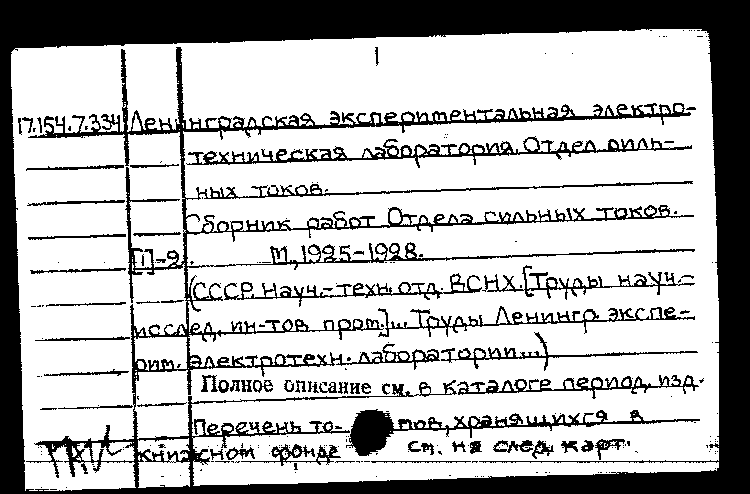 17.154.7.334 Ленинградская экспериментальная электро-
техническая лаборатория. Отдел силь-
ных токов.
Сборник работ Отдела сильных токов.
[1]-2. М., 1925-1928.
(СССР. Науч.-техн. отд. ВСНХ. [Труды науч.-
исслед. ин-тов пром.]... Труды Ленингр. экспе-
рим. электротехн. лаборатории...)
Полное описание см. в каталоге период. изд.
Перечень то- мов, хранящихся в
книжном фонде см. на след. карт.